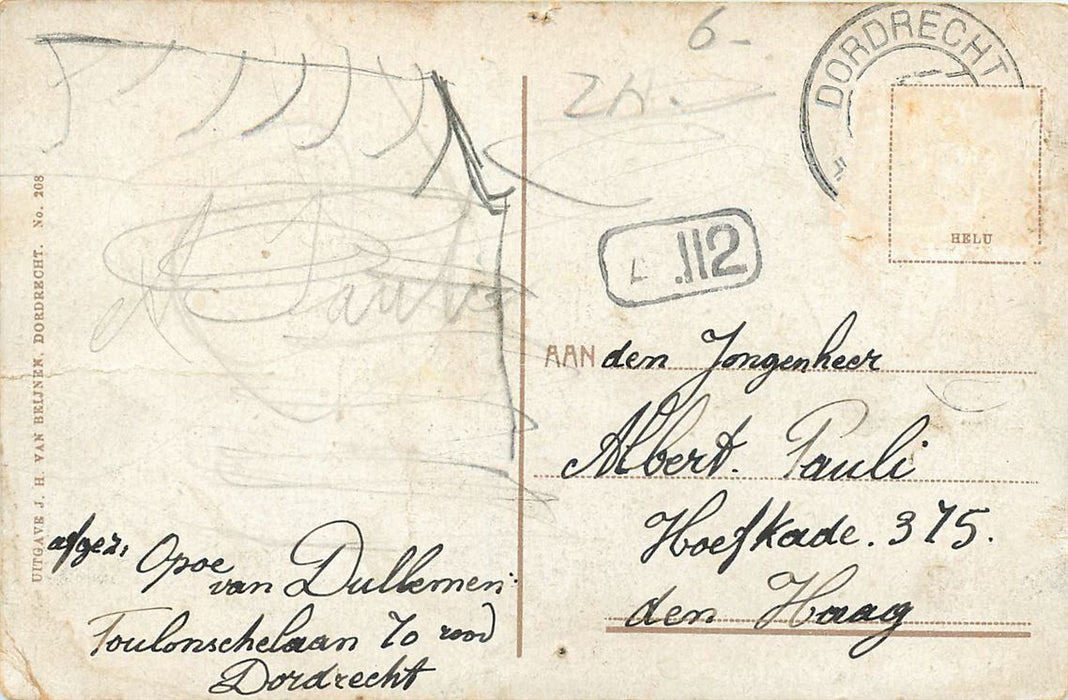 6-
ZH.
DORDRECHT
HELU
112
Pauli
UITGAVE J. H. VAN BEIJNEN, DORDRECHT. No. 208
AAN den Jongenheer
Albert. Pauli
Hoefkade. 375.
den Haag
afgez,
Opoe
van Dullemen
Toulonschelaan 70 rood
Dordrecht